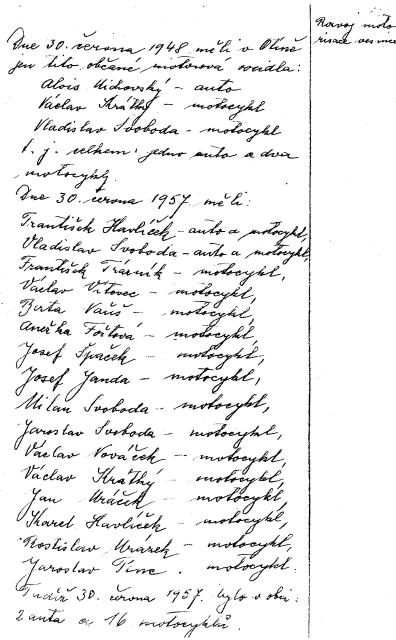 Rozvoj moto
risace vesnice
Dne 30. června 1948 měli v Olšině
jen tito občané motorová vozidla:
Alois Michovský – auto
Václav Krátký – motocykl
Vladislav Svoboda – motocykl
t. j. celkem: jedno auto a dva
motocykly.
Dne 30. června 1957 měli:
František Havlíček – auto a motocykl,
Vladislav Svoboda – auto a motocykl,
František Trávník – motocykl,
Václav Vítovec – motocykl,
Berta Vašš – motocykl,
Anežka Fořtová – motocykl,
Josef Špaček – motocykl,
Josef Janda – motocykl,
Milan Svoboda – motocykl,
Jaroslav Svoboda – motocykl,
Václav Nováček – motocykl,
Václav Krátký – motocykl,
Jan Mráček – motocykl,
Karel Havlíček – motocykl,
Rostislav Mrázek – motocykl,
Jaroslav . motocykl.
Tudíž 30. června 1957. bylo v obci:
2 auta a 16 motocyklů.